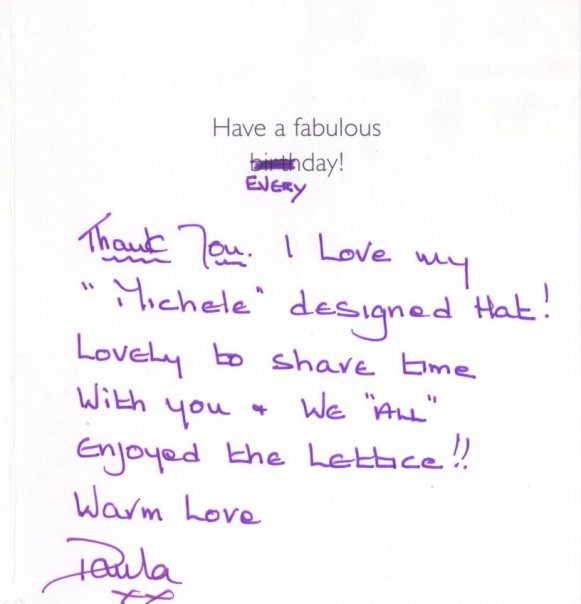 Have a fabulous
birthday!
EVERY
Thank You. I Love my
"Michele" designed Hat!
Lovely to share time
With you + We "ALL"
Enjoyed the Lettice!!
Warm Love
Paula
xx